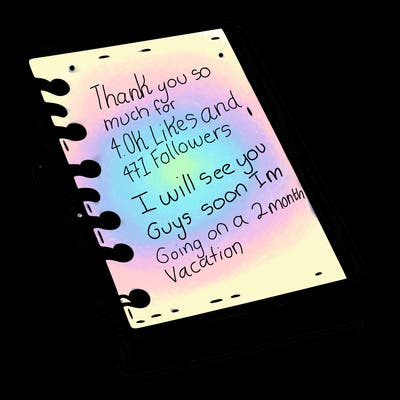 Thank you so
much for
4.0K Likes and
471 Followers
I will see you
Guys soon Im
Going on a 2 month
Vacation